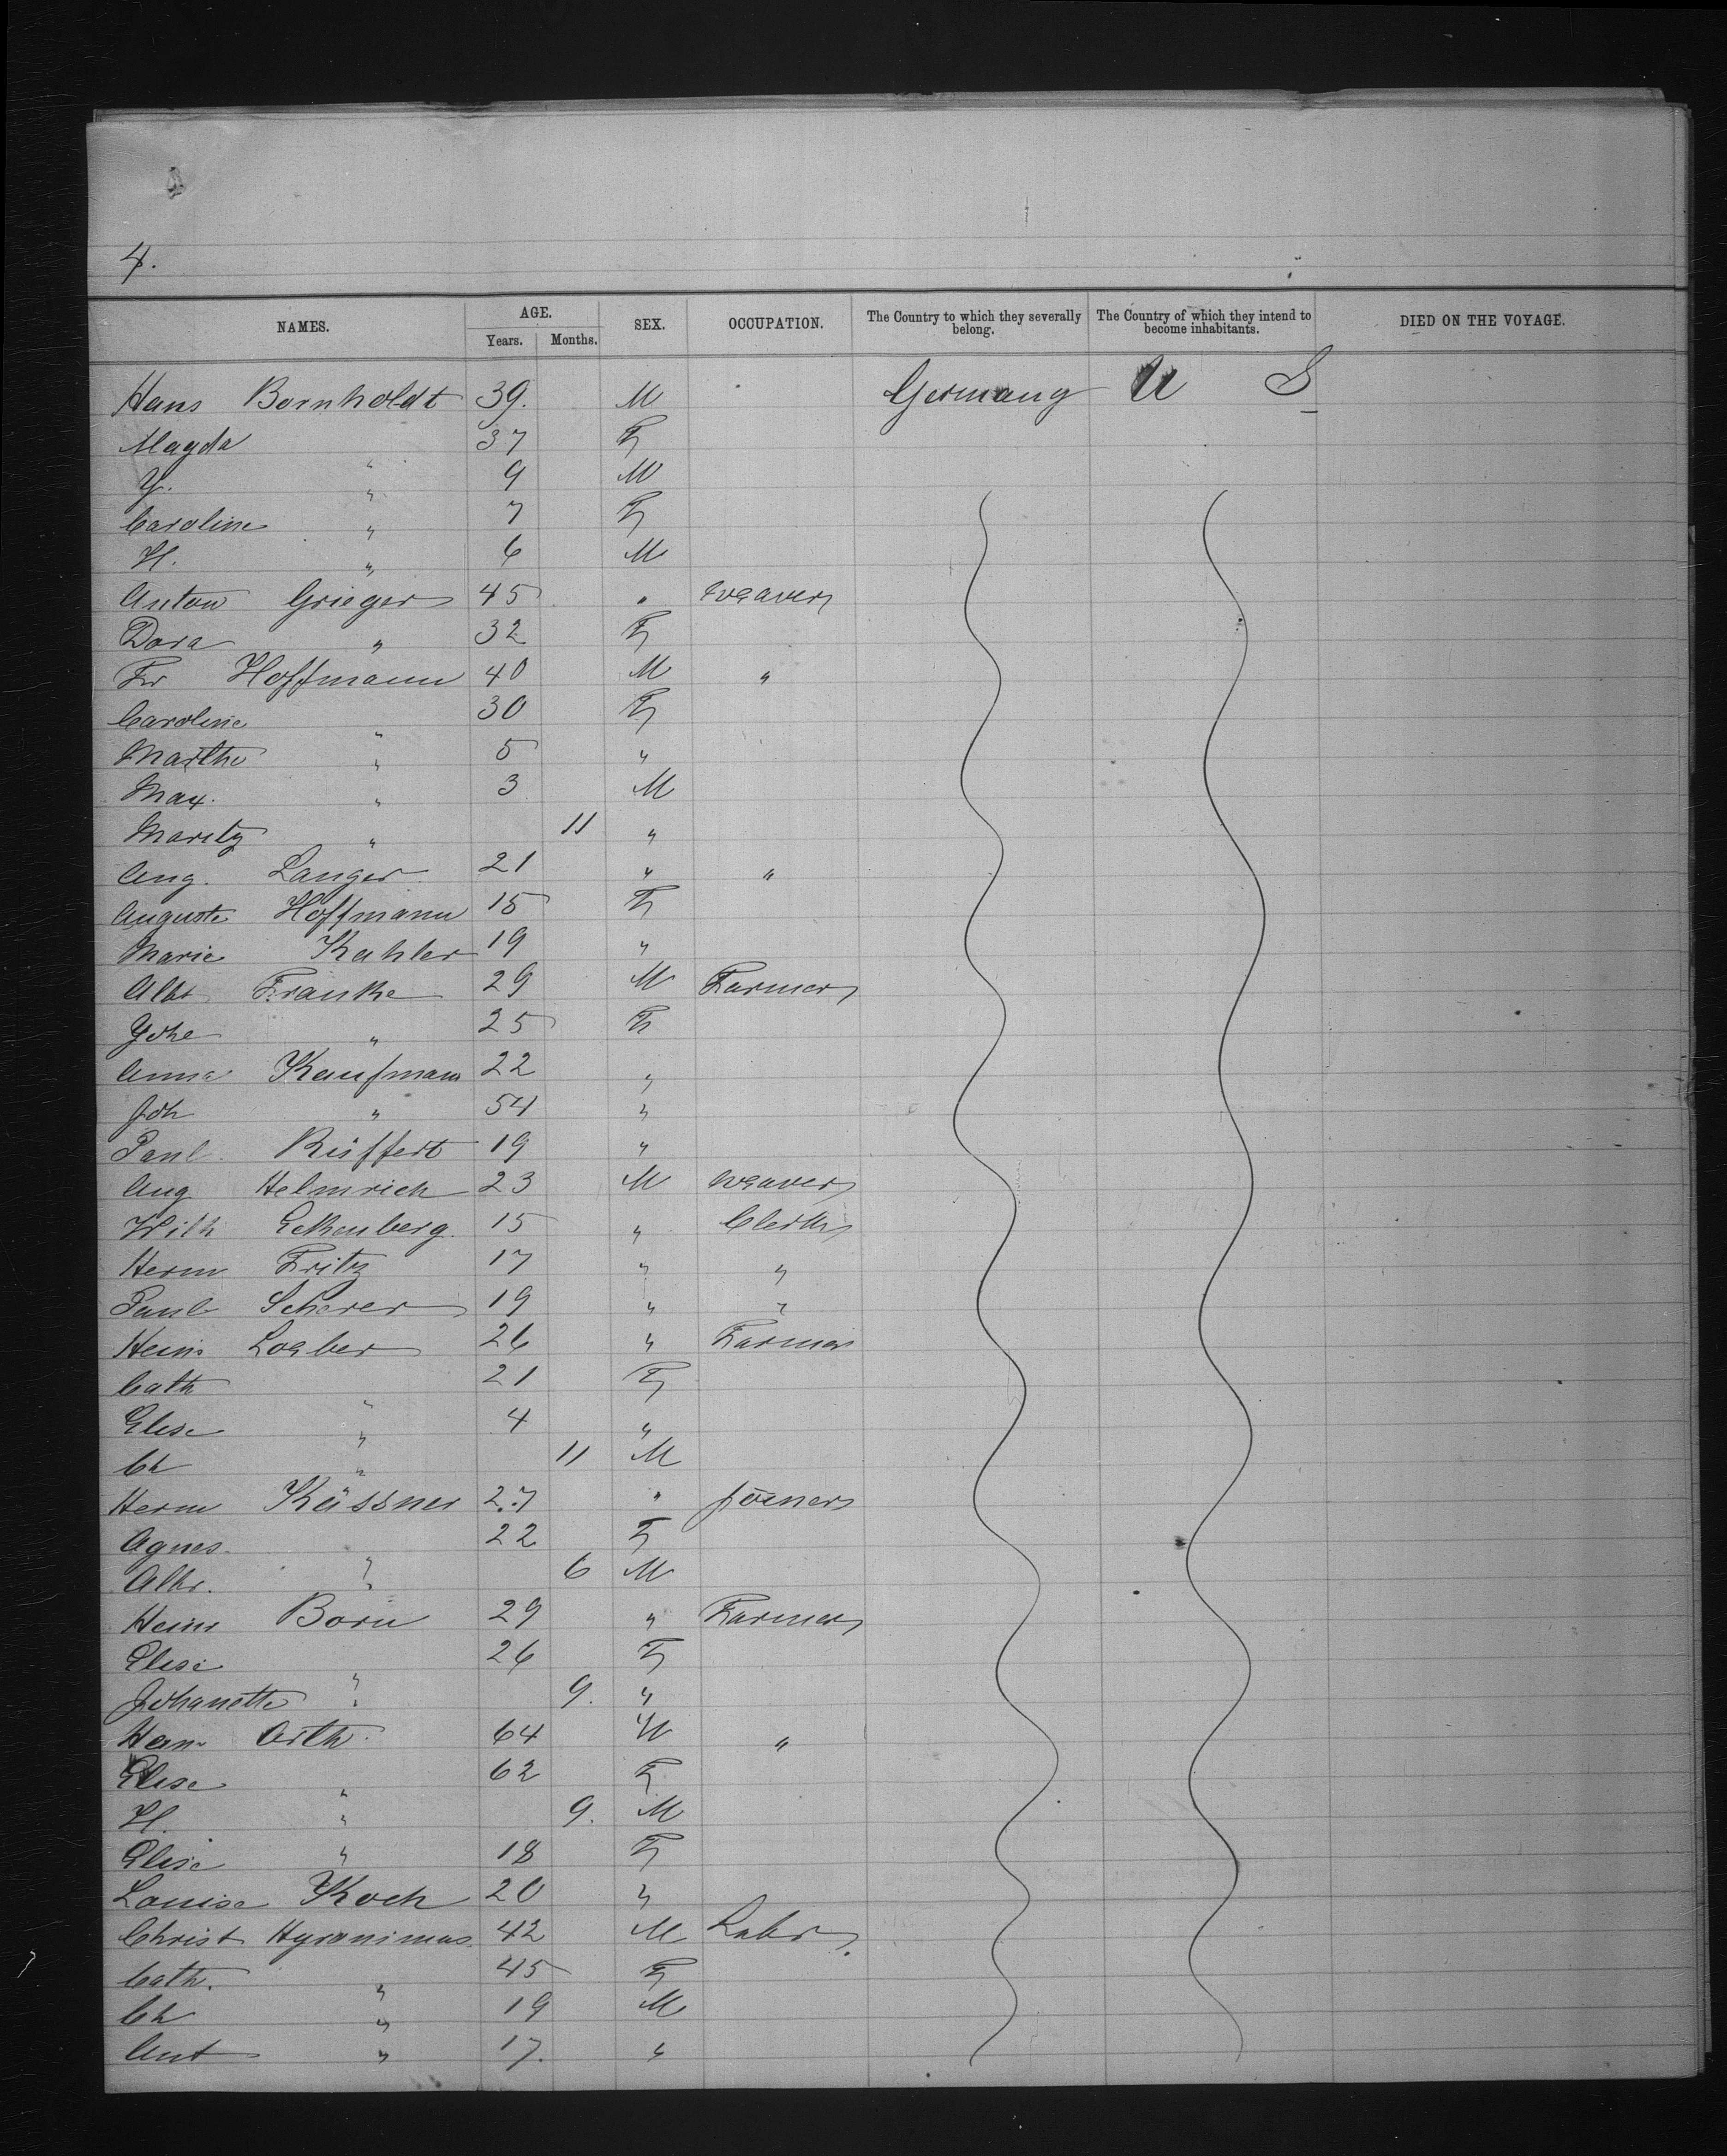 4.
NAMES. AGE. Years. Months. SEX. OCCUPATION. The Country to which they severally belong. The Country of which they intend to become inhabitants. DIED ON THE VOYAGE.
Hans Bornholdt 39. M Germany U S
Magda " 37 F
Y. " 9 M
Caroline " 7 F
H. " 6 M
Anton Grieger 45 " weaver
Dora " 32 F
Fr Hoffmann 40 M "
Caroline " 30 F
Marthe " 5 "
Max. " 3 M
Moritz " 11 "
Aug. Langer 21 " "
Auguste Hoffmann 15 F
Marie Kahler 19 "
Albt Franke 29 M Farmer
Johe " 25 F
Anna Kaufmann 22 "
Joh " 54 "
Paul Rüffert 19 "
Aug Helmrich 23 M weaver
Wilh Eckenberg 15 " Clerk
Herm Fritz 17 " "
Paul Scherer 19 " "
Heinr Loeber 26 " Farmer
Cath " 21 F
Elise " 4 "
Ch " 11 M
Herm Kässner 27 " joiner
Agnes 22 F
Albr. " 6 M
Heinr Born 29 " Farmer
Elise " 26 F
Johanette " 9. "
Heinr Orth. 64 M "
Elise " 62 F
H. " 9. M
Elise " 18 F
Louise Koch 20 "
Christ Hyronimus 42 M Labr.
Cath. " 45 F
Ch " 19 M
Ant " 17. "